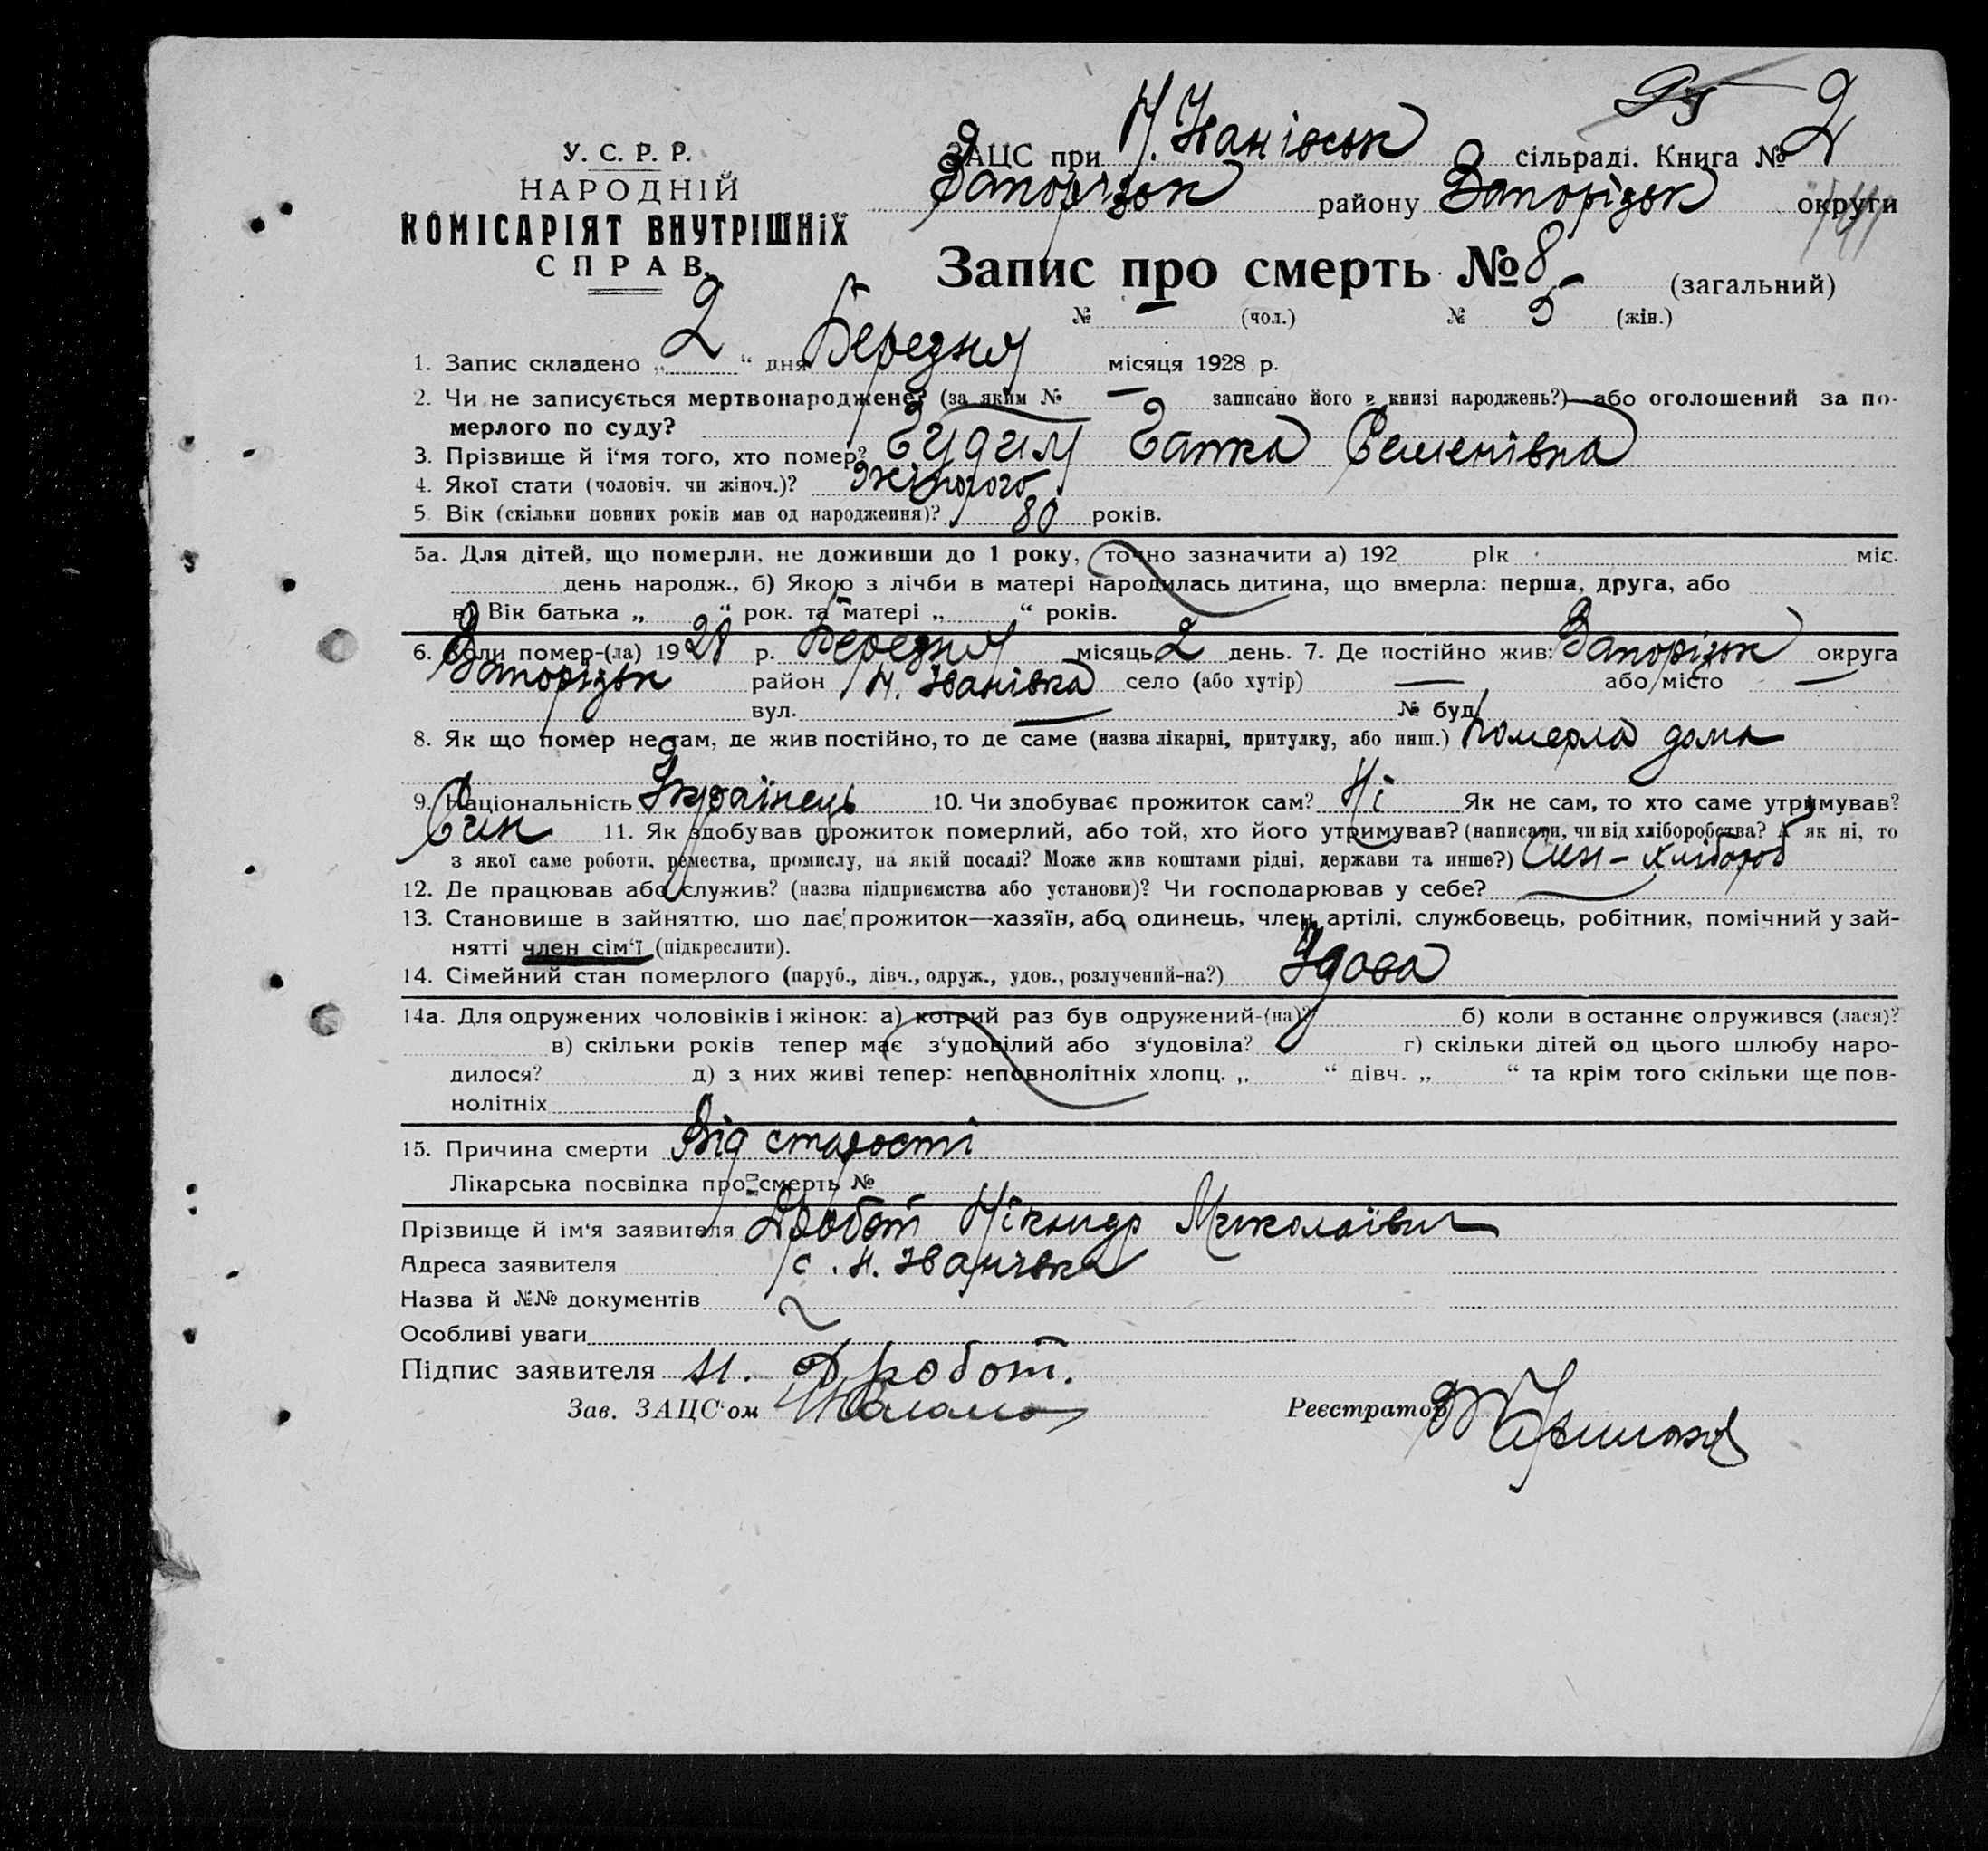 У. С. Р. Р.
НАРОДНІЙ
КОМІСАРІЯТ ВНУТРІШНіХ
СПРАВ.
2
ЗАЦС при Н. Іванівськ сільраді. Книга № 2
Запорізьк району Запорізьк округи
Запис про смерть № 8 (загальний)
№ — (чол.) № 5 (жін.)
1. Запис складено „ 2 “ дня Березня місяця 1928 р.
2. Чи не записується мертвонароджене? (за яким № — записано його в книзі народжень?) або оголошений за по-
мерлого по суду?
3. Прізвище й і'мя того, хто помер? Семенівна
4. Якої стати (чоловіч. чи жіноч.)? жіночого
5. Вік (скільки повних років мав од народження)? 80 років.
5а. Для дітей, що померли, не доживши до 1 року, точно зазначити а) 192 рік міс.
день народж., б) Якою з лічби в матері народилась дитина, що вмерла: перша, друга, або
в) Вік батька „ “ рок. та матері „ “ років.
6. Коли помер-(ла) 1928 р. Березня місяць 2 день. 7. Де постійно жив: Запорізьк округа
Запорізьк район Н. Іванівка село (або хутір) — або місто —
вул. — № буд.
8. Як що помер не там, де жив постійно, то де саме (назва лікарні, притулку, або инш.) Померла дома
9. Національність Українець 10. Чи здобуває прожиток сам? Ні Як не сам, то хто саме утримував?
Син 11. Як здобував прожиток померлий, або той, хто його утримував? (написати, чи від хліборобства? А як ні, то
з якої саме роботи, ремества, промислу, на якій посаді? Може жив коштами рідні, держави та инше?) Син – хлібороб
12. Де працював або служив? (назва підприємства або установи)? Чи господарював у себе?
13. Становище в зайняттю, що дає прожиток—хазяїн, або одинець, член артілі, службовець, робітник, помічний у зай-
нятті член сім'ї (підкреслити).
14. Сімейний стан померлого (паруб., дівч., одруж., удов., розлучений-на?) Удова
14а. Для одружених чоловіків і жінок: а) котрий раз був одружений-(на)? б) коли в останнє одружився (лася)?
в) скільки років тепер має з'удовілий або з'удовіла? г) скільки дітей од цього шлюбу наро-
дилося? д) з них живі тепер: неповнолітніх хлопц. „ “ дівч. „ “ та крім того скільки ще пов-
нолітніх
15. Причина смерти Від старості
Лікарська посвідка про смерть №
Прізвище й ім'я заявителя Дробот Нікандр Миколаївич
Адреса заявителя с. Н. Іванівка
Назва й №№ документів
Особливі уваги
Підпис заявителя Н. Дробот.
Зав. ЗАЦС'ом Реєстратор